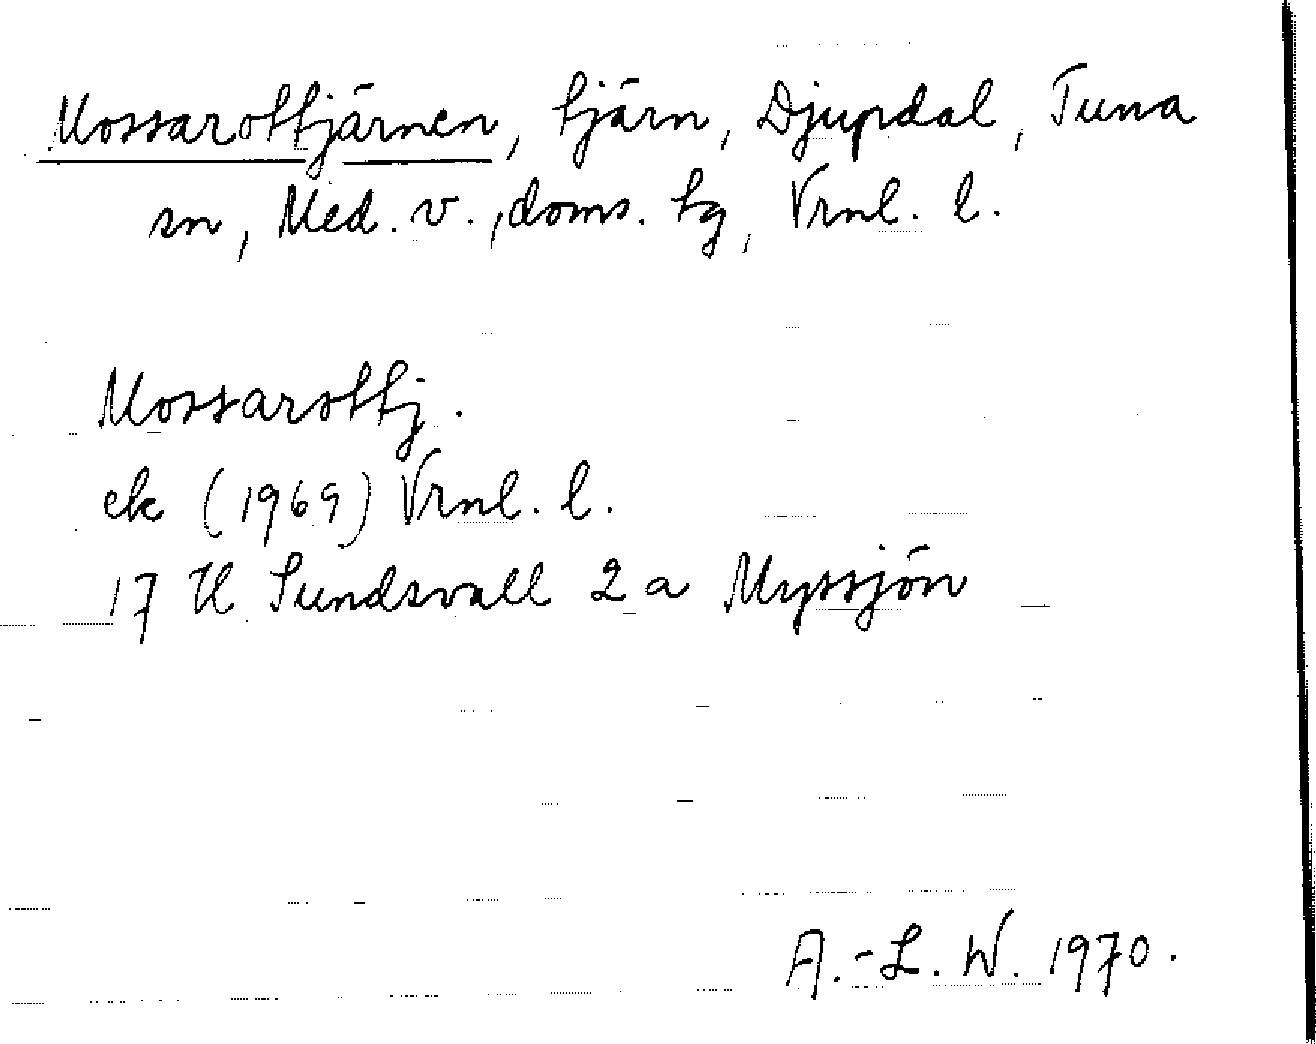 Mossarottjärnen, tjärn, Djupdal, Tuna
sn, Med. v., doms. tg, Vrnl. l.
Mossarottj.
ek (1969) Vrnl. l.
17 H Sundsvall 2 a Myssjön
A.-L. W. 1970.